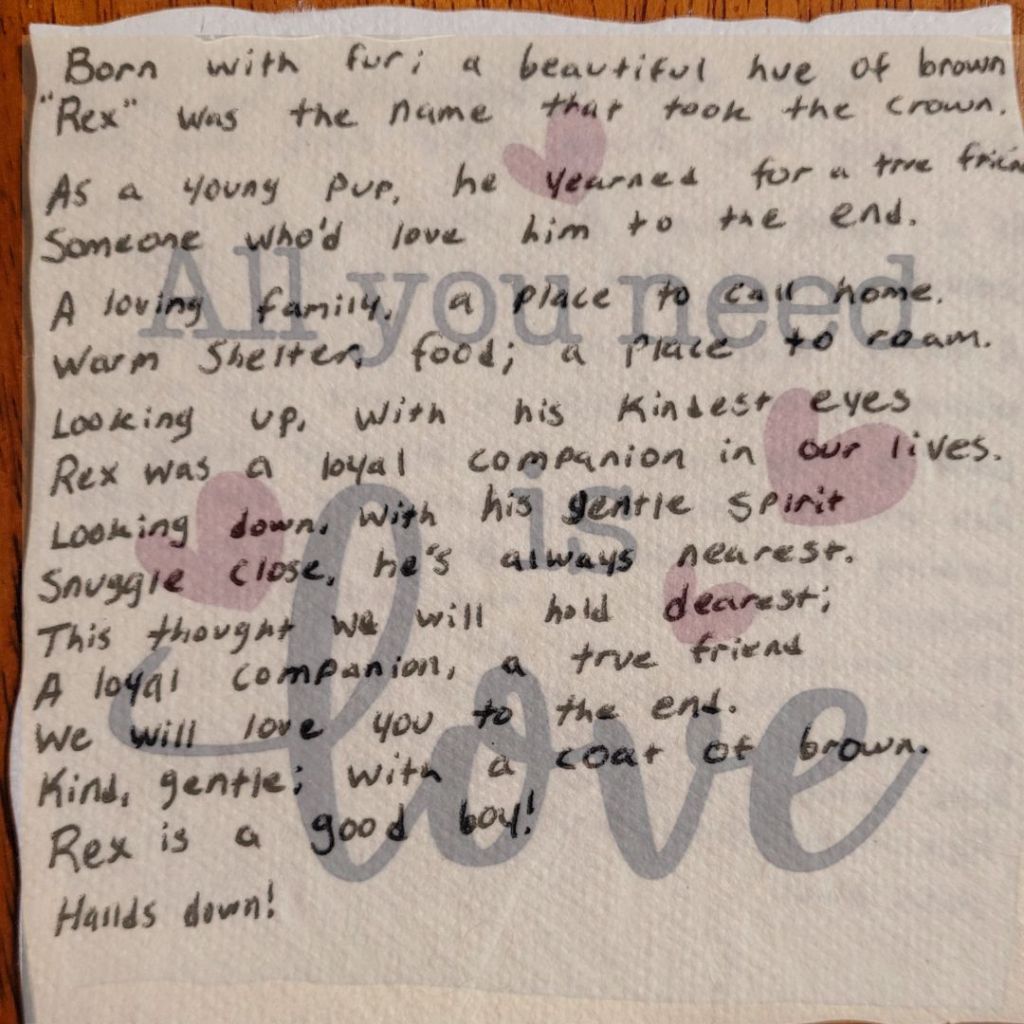 Born with fur; a beautiful hue of brown
"Rex" was the name that took the crown.
As a young pup, he yearned for a true friend
Someone who'd love him to the end.
A loving family, a place to call home.
Warm Shelter, food; a place to roam.
Looking up, with his kindest eyes
Rex was a loyal companion in our lives.
Looking down, with his gentle spirit
Snuggle close, he's always nearest.
This thought we will hold dearest;
A loyal companion, a true friend
We will love you to the end.
Kind, gentle; with a coat of brown.
Rex is a good boy!
Hands down!
All you need
is
love